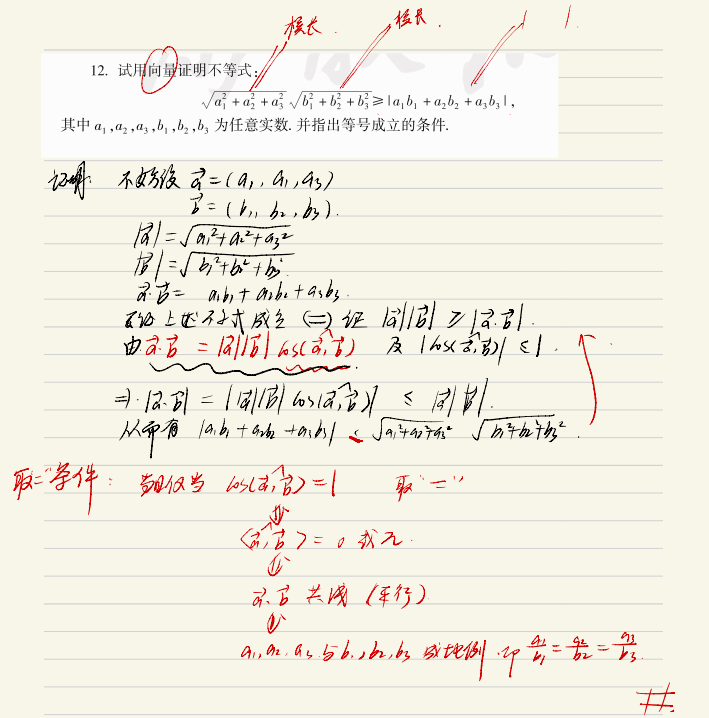 模长 模长
12. 试用向量证明不等式:
√(a₁²+a₂²+a₃²) √(b₁²+b₂²+b₃²) ≥ |a₁b₁+a₂b₂+a₃b₃|,
其中 a₁,a₂,a₃,b₁,b₂,b₃ 为任意实数. 并指出等号成立的条件.
证明: 不妨设 a⃗=(a₁, a₁, a₃)
b⃗=(b₁, b₂, b₃).
|a⃗|=√(a₁²+a₂²+a₃²)
|b⃗|=√(b₁²+b₂²+b₃²)
a⃗·b⃗= a₁b₁+a₂b₂+a₃b₃.
要证上述不等式成立 ⇔ 证 |a⃗||b⃗| ≥ |a⃗·b⃗|.
由 a⃗·b⃗ = |a⃗||b⃗| cos(a⃗,b⃗) 及 |cos(a⃗,b⃗)| ≤ 1.
⇒ |a⃗·b⃗| = ||a⃗||b⃗| cos(a⃗,b⃗)| ≤ |a⃗||b⃗|.
从而有 |a₁b₁+a₂b₂+a₃b₃| ≤ √(a₁²+a₂²+a₃²) √(b₁²+b₂²+b₃²).
取"="条件: 当且仅当 cos(a⃗,b⃗)=1 取"="
⇕
<a⃗,b⃗>=0或π.
⇕
a⃗,b⃗ 共线 (平行)
⇕
a₁,a₂,a₃ 与 b₁,b₂,b₃ 成比例. 即 a₁/b₁=a₂/b₂=a₃/b₃.
#